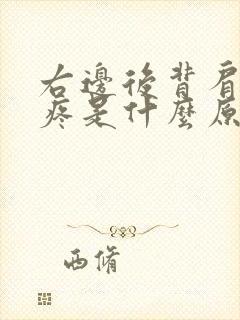 右邊後背肩
疼是什麼原
西脩